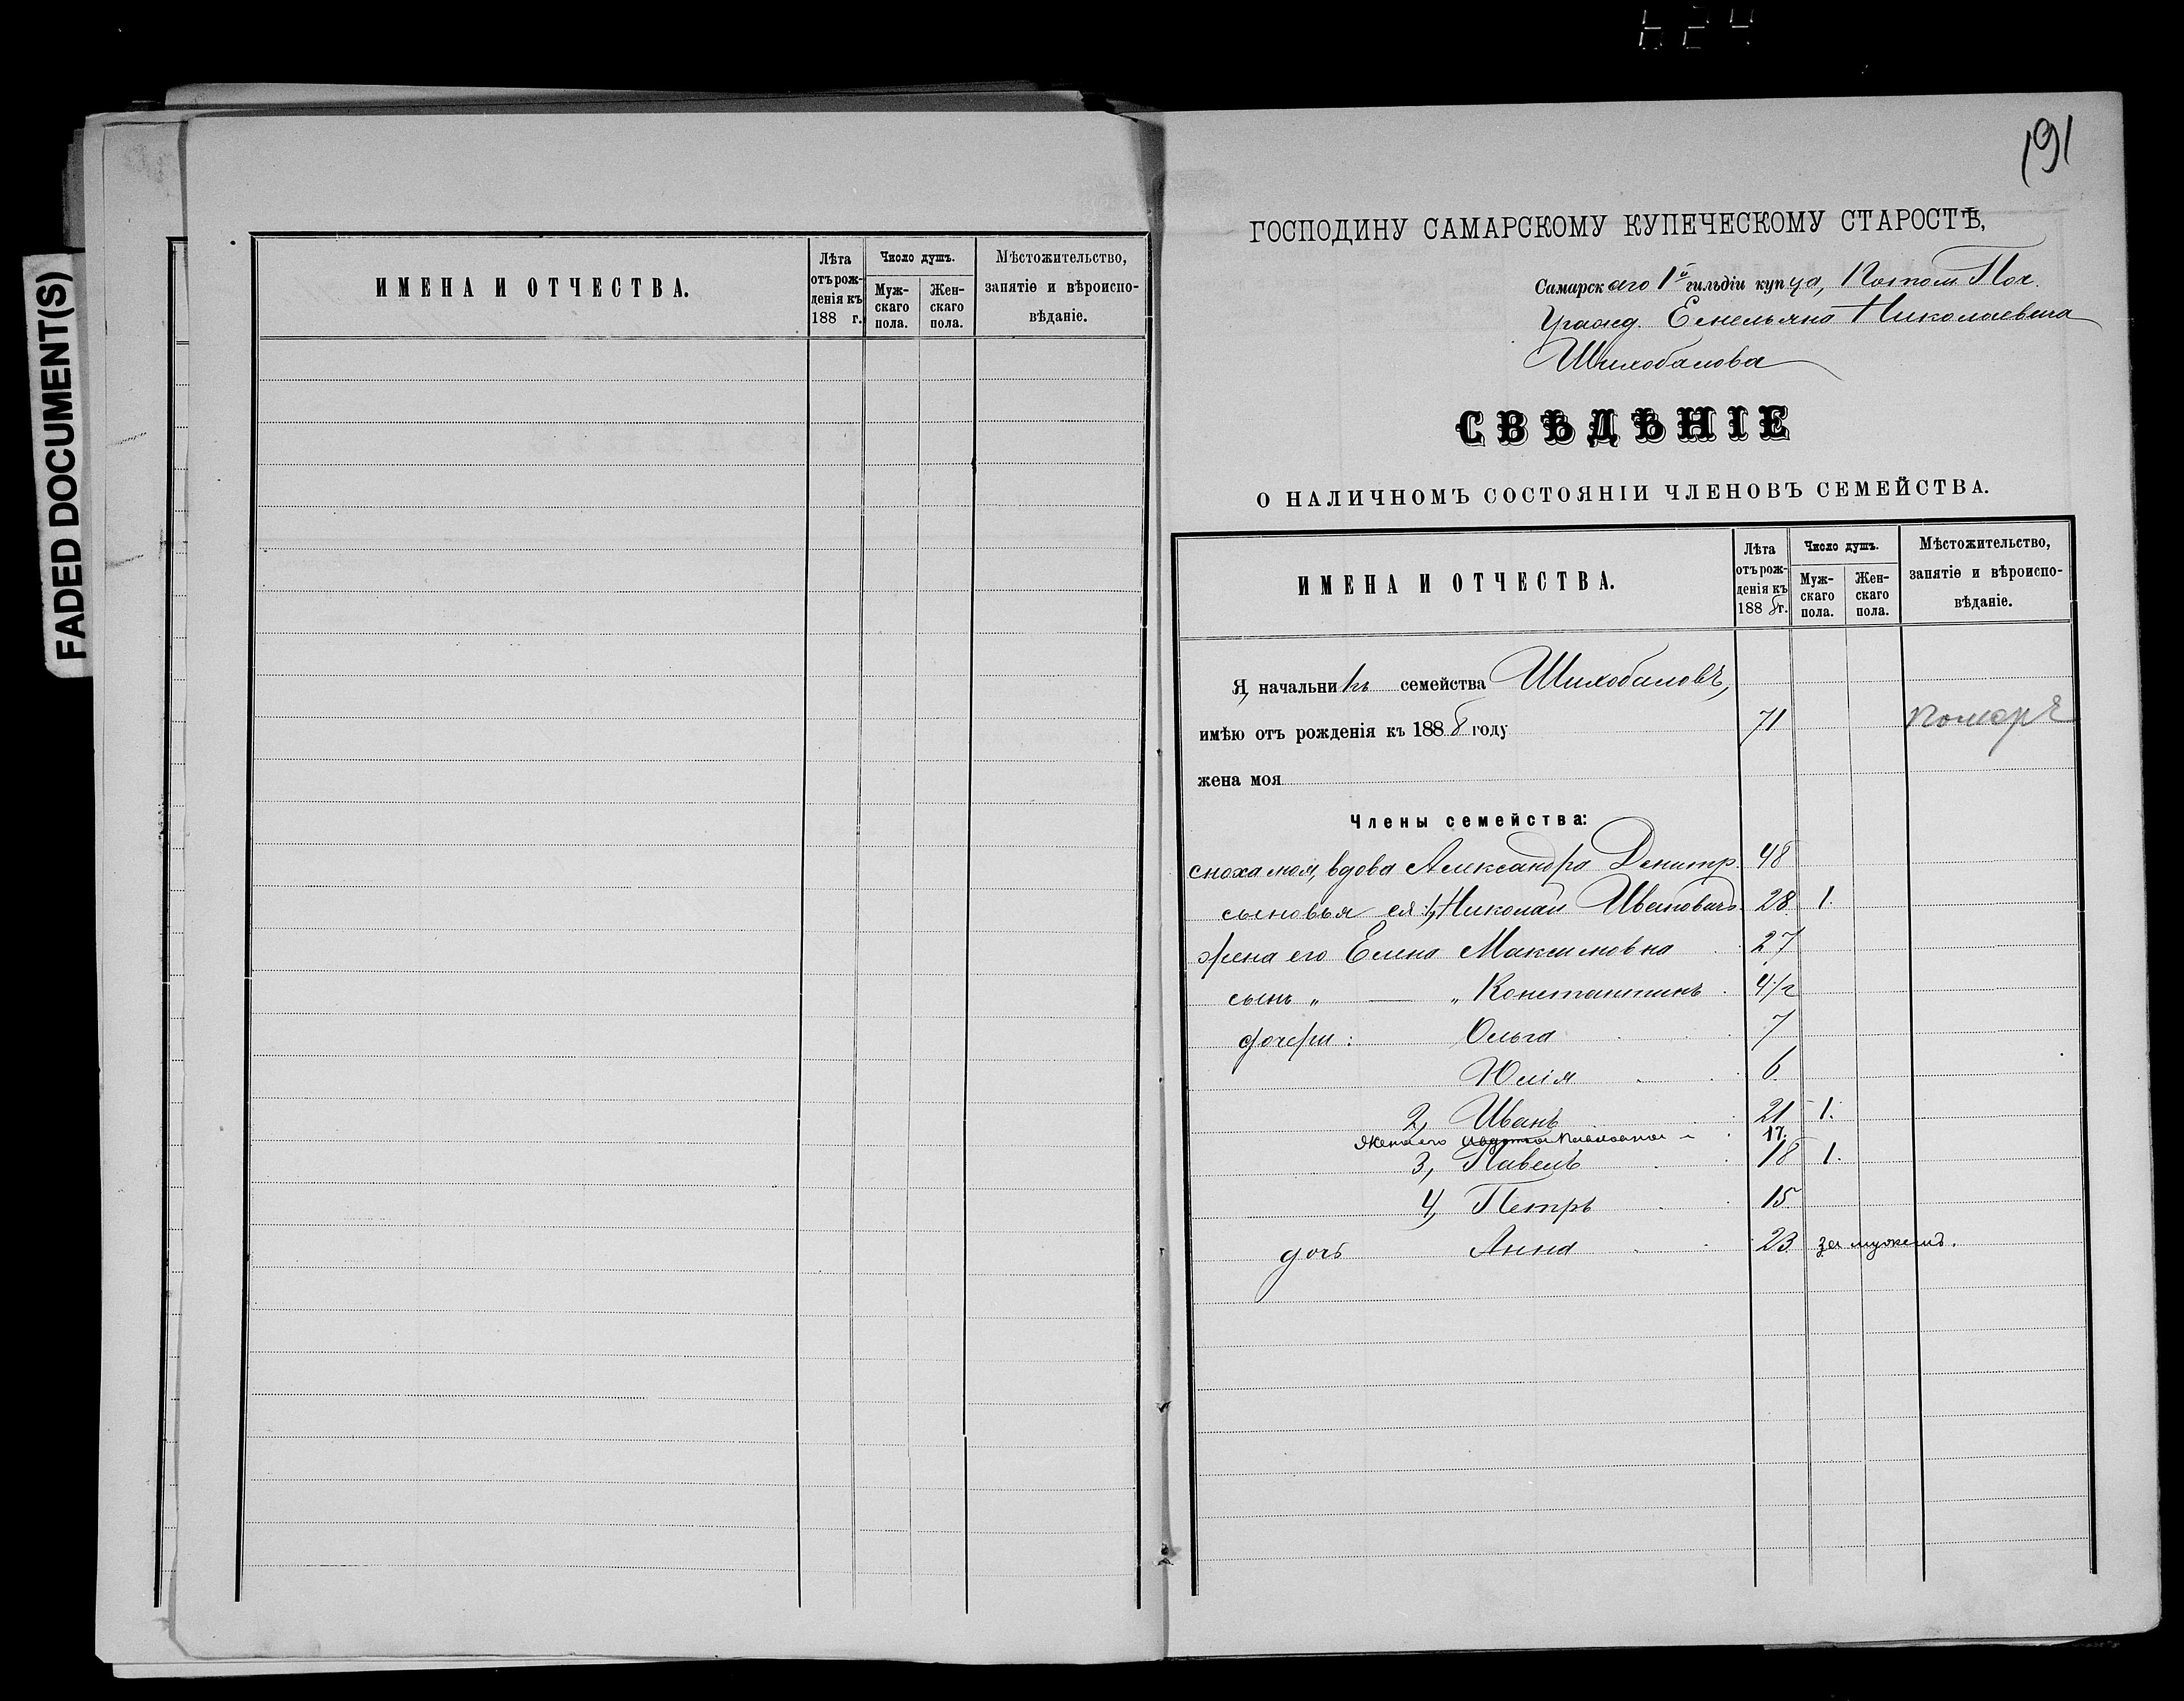 FADED DOCUMENT(S)
ИМЕНА И ОТЧЕСТВА.
Лѣта отъ рожденія къ 188 г.
Число душъ.
Мужскаго пола.
Женскаго пола.
Мѣстожительство, занятіе и вѣроисповѣданіе.
191
ГОСПОДИНУ САМАРСКОМУ КУПЕЧЕСКОМУ СТАРОСТѢ,
Самарскаго 1й гильдіи купца, Потом. Поч.
Гражд. Емельяна Николаевича
Шихобалова
СВѢДѢНІЕ
О НАЛИЧНОМЪ СОСТОЯНІИ ЧЛЕНОВЪ СЕМЕЙСТВА.
ИМЕНА И ОТЧЕСТВА.
Лѣта отъ рожденія къ 1888 г.
Число душъ.
Мужскаго пола.
Женскаго пола.
Мѣстожительство, занятіе и вѣроисповѣданіе.
Я, начальникъ семейства Шихобаловъ,
имѣю отъ рожденія къ 1888 году 71 померъ
жена моя
Члены семейства:
сноха моя, вдова Александра Дмитр. 48
сыновья ея: 1, Николай Ивановичъ 28 1.
жена его Елена Максимовна 27
сынъ „ — „ Константинъ 4 1/2
дочери: Ольга 7
Юлія 6
2, Иванъ 21 1.
жена его Павловна 17.
3, Павелъ 18 1.
4, Петръ 15
дочь Анна 23 за мужемъ.